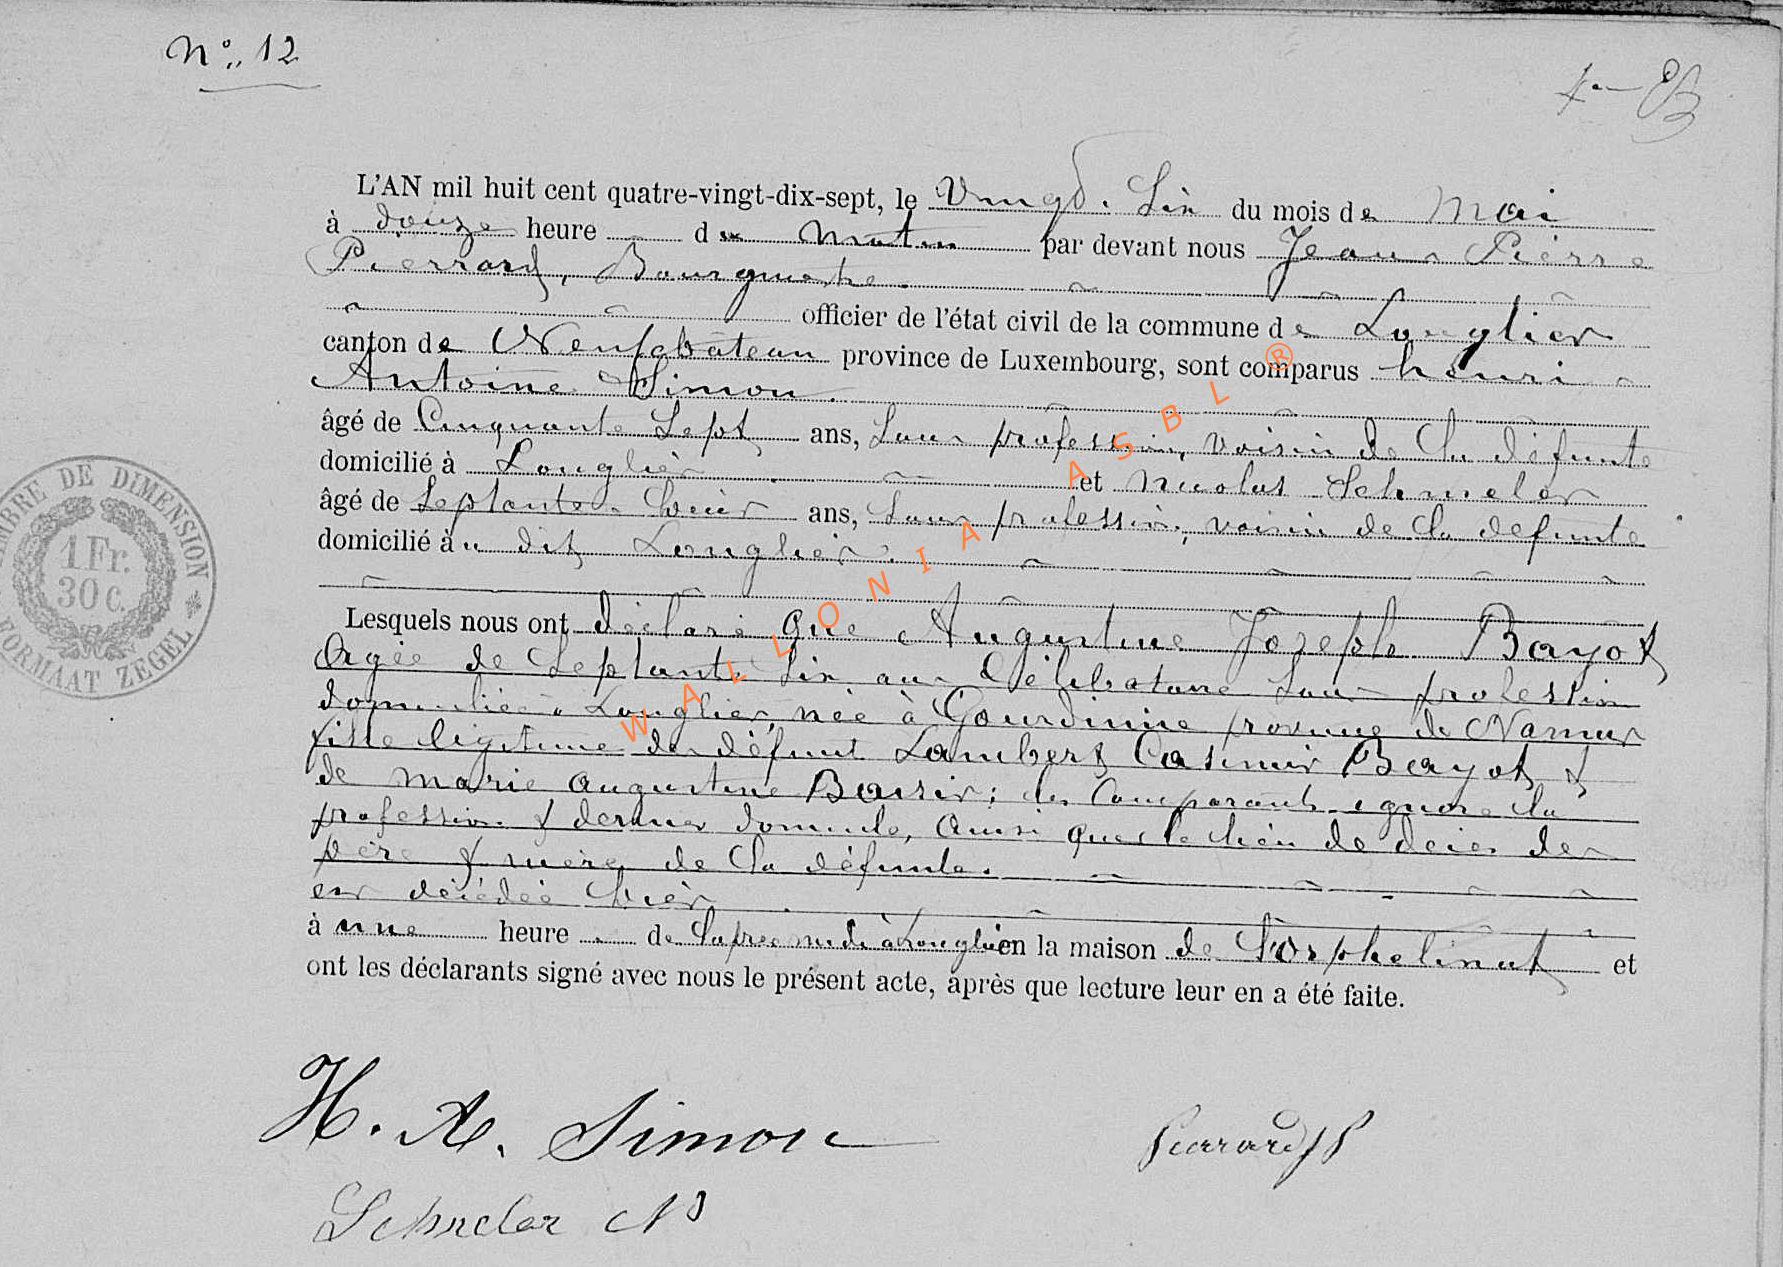 N°. 12
L'AN mil huit cent quatre-vingt-dix-sept, le Vingt. Six du mois de Mai
à douze heure du Matin par devant nous Jean Pierre
Pierrard, Bourgmestre.
officier de l'état civil de la commune de Longlier
canton de Neufchâteau province de Luxembourg, sont comparus henri
Antoine Simon.
âgé de Cinquante Sept ans, Sans profession, voisin de la défunte
domicilié à Longlier. et Nicolas Schmeler
âgé de Septante. ans, Sans profession, voisin de la défunte
domicilié au dit Longlier.
Lesquels nous ont déclaré que Augustine Joseph Bayot
Agée de Septante Six ans Célibataire Sans profession
domiliée à Longlier, née à Gourdinne provine de Namur
fille légitime de défunt Lambert Casimir Bayot &
de marie augustine Bassir; les Comparants ignore la
profession & dernier domicile, Ainsi que le lieu de décès des
père & mère de la défunte.
est décédée hier
à une heure de l'après midi à Longlier en la maison de l'orphelinat et
ont les déclarants signé avec nous le présent acte, après que lecture leur en a été faite.
H. A. Simon
Pierrard J P
Schmeler N
TIMBRE DE DIMENSION
1 Fr.
30 C.
FORMAAT ZEGEL
WALLONIA ASBL ®